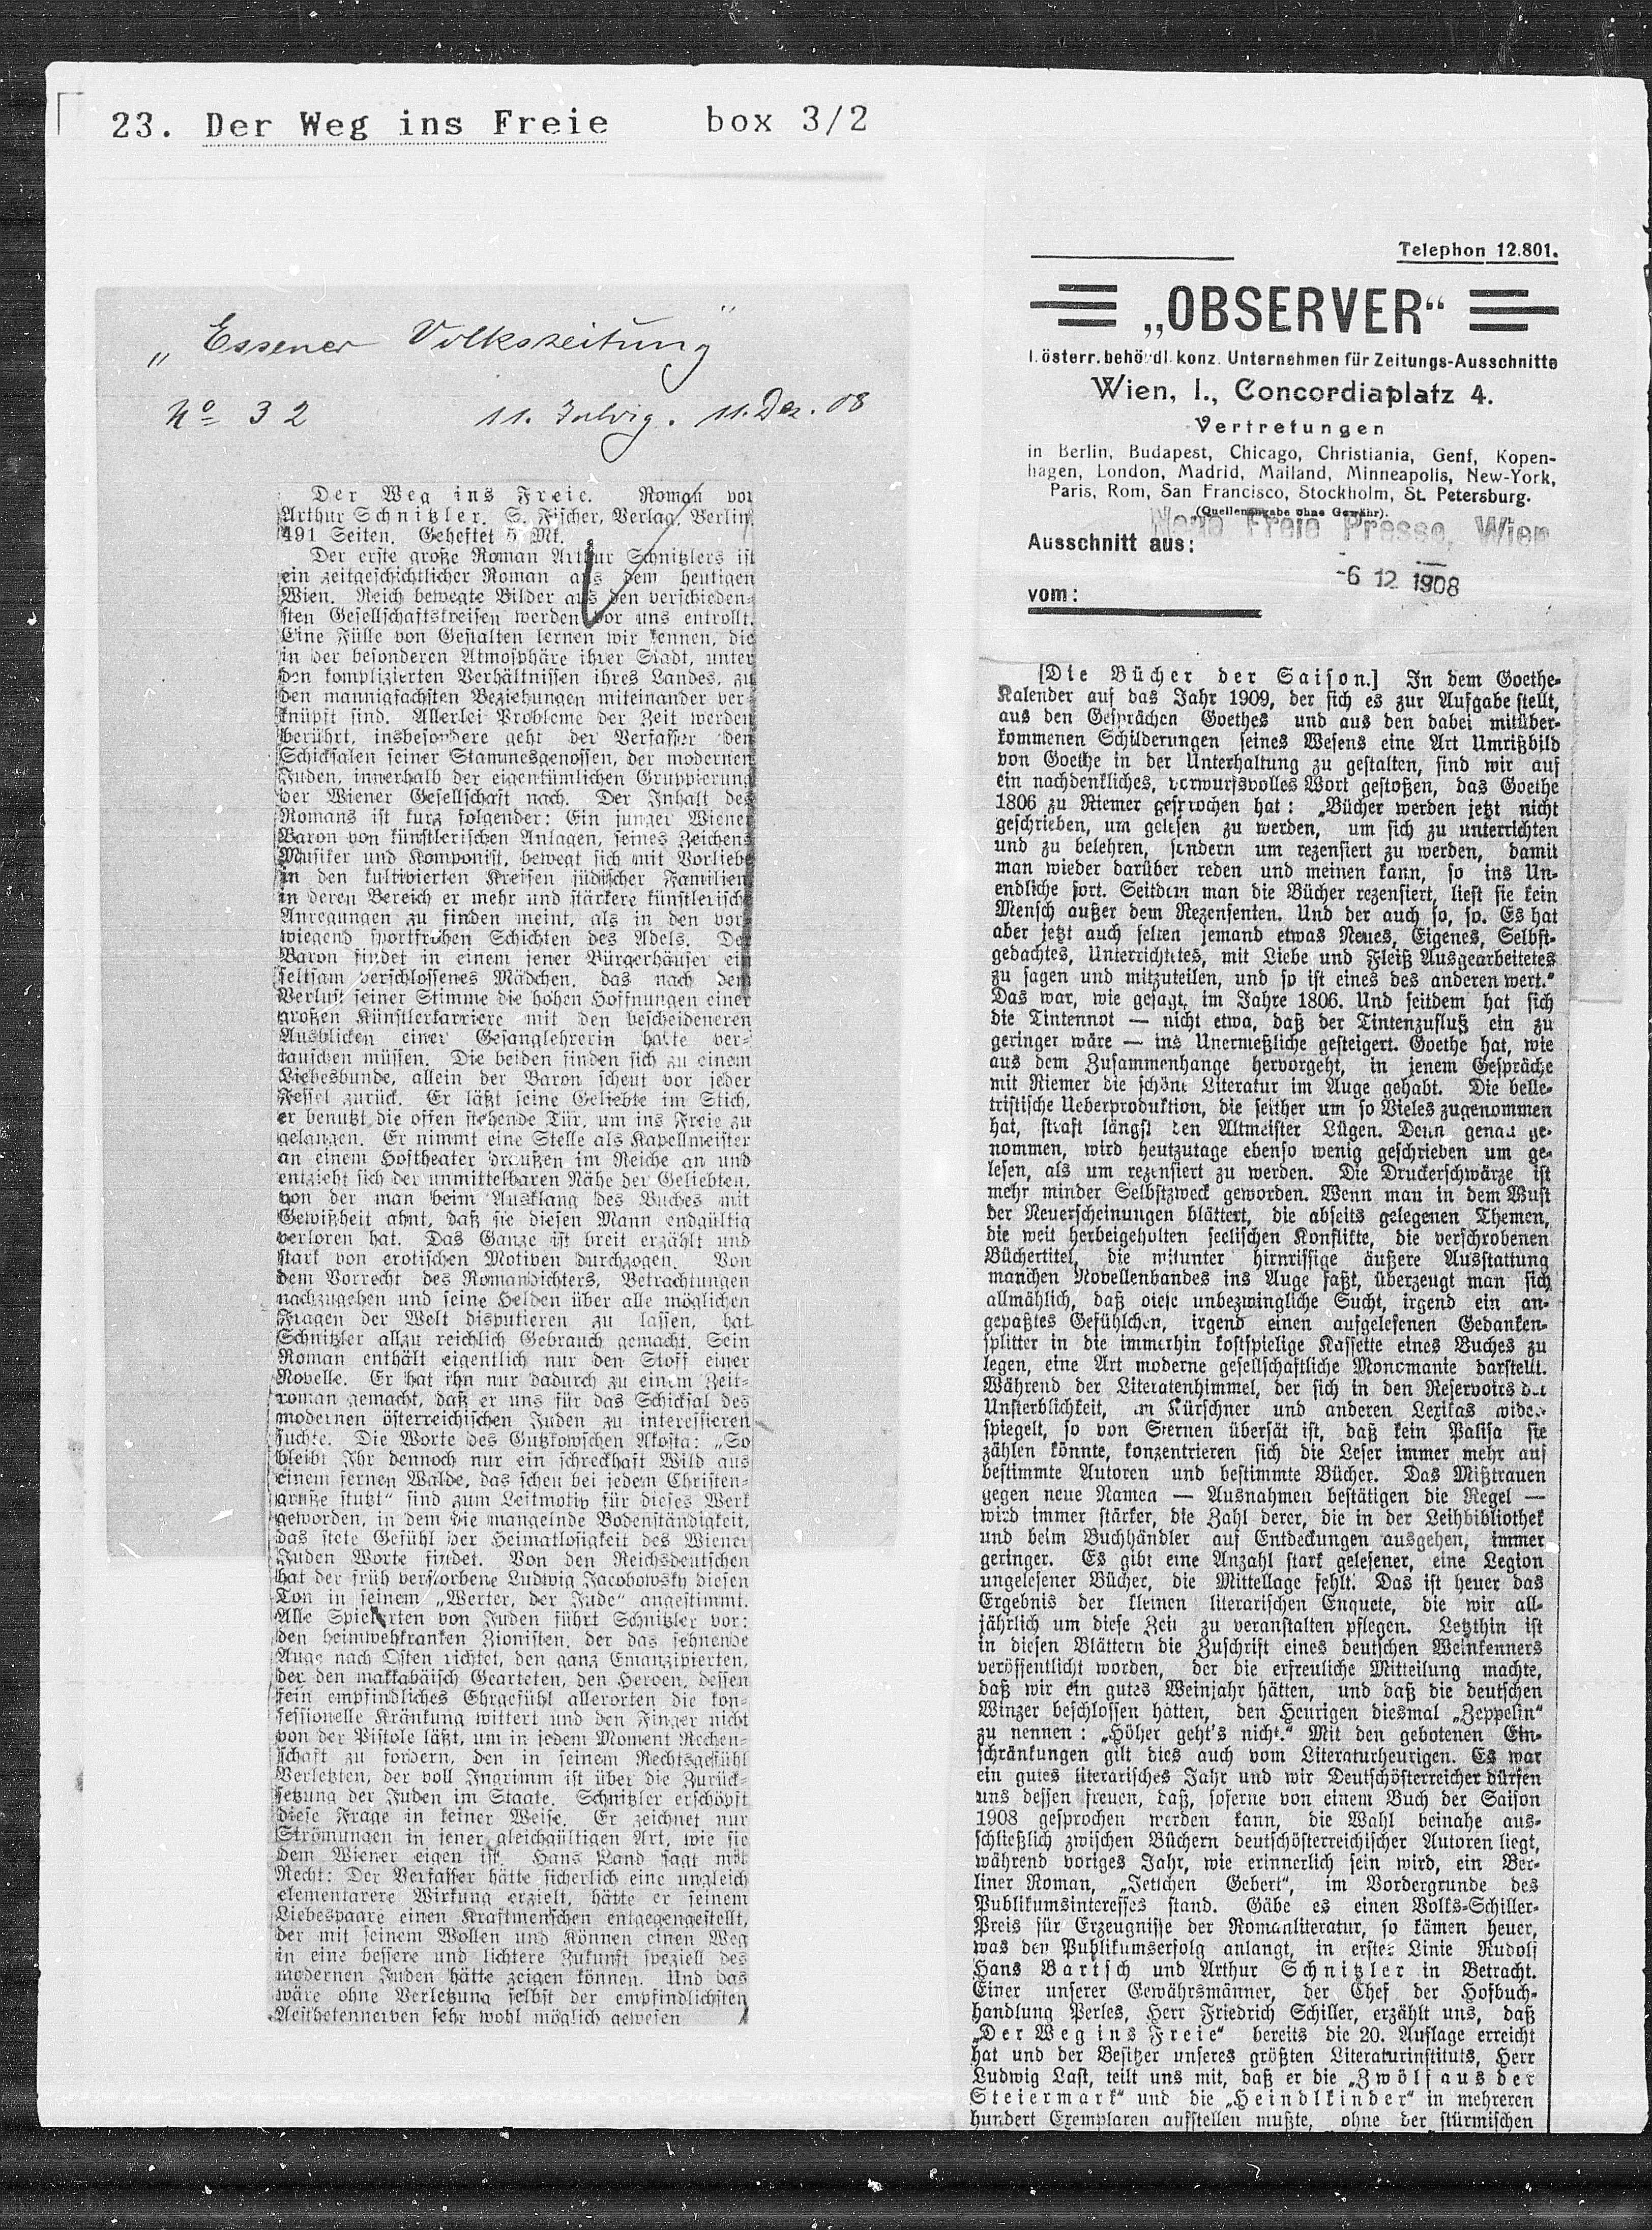 23. Der Weg ins Freie box 3/2
„Essener Volkszeitung"
No 32 11. Dez. 08
Der Weg ins Freie. Roman von
Arthur Schnitzler. S. Fischer, Verlag, Berlin.
491 Seiten. Geheftet Mk.
Der erste große Roman Arthur Schnitzlers ist
ein zeitgeschichtlicher Roman aus dem heutigen
Wien. Reich bewegte Bilder aus den verschieden-
sten Gesellschaftskreisen werden vor uns entrollt.
Eine Fülle von Gestalten lernen wir kennen, die
in der besonderen Atmosphäre ihrer Stadt, unter
den komplizierten Verhältnissen ihres Landes, zu
den mannigfachsten Beziehungen miteinander ver-
knüpft sind. Allerlei Probleme der Zeit werden
berührt, insbesondere geht der Verfasser den
Schicksalen seiner Stammesgenossen, der modernen
Juden, innerhalb der eigentümlichen Gruppierung
der Wiener Gesellschaft nach. Der Inhalt des
Romans ist kurz folgender: Ein junger Wiener
Baron von künstlerischen Anlagen, seines Zeichens
Musiker und Komponist, bewegt sich mit Vorliebe
in den kultivierten Kreisen jüdischer Familien,
in deren Bereich er mehr und stärkere künstlerische
Anregungen zu finden meint, als in den vor-
wiegend sportfrohen Schichten des Adels. Der
Baron findet in einem jener Bürgerhäuser ein
seltsam verschlossenes Mädchen, das nach dem
Verlust seiner Stimme die hohen Hoffnungen einer
großen Künstlerkarriere mit den bescheideneren
Ausblicken einer Gesanglehrerin hatte ver-
tauschen müssen. Die beiden finden sich zu einem
Liebesbunde, allein der Baron scheut vor jeder
Fessel zurück. Er läßt seine Geliebte im Stich,
er benutzt die offen stehende Tür, um ins Freie zu
gelangen. Er nimmt eine Stelle als Kapellmeister
an einem Hoftheater draußen im Reiche an und
entzieht sich der unmittelbaren Nähe der Geliebten,
von der man beim Ausklang des Buches mit
Gewißheit ahnt, daß sie diesen Mann endgültig
verloren hat. Das Ganze ist breit erzählt und
stark von erotischen Motiven durchzogen. Von
dem Vorrecht des Romandichters, Betrachtungen
nachzugehen und seine Helden über alle möglichen
Fragen der Welt disputieren zu lassen, hat
Schnitzler allzu reichlich Gebrauch gemacht. Sein
Roman enthält eigentlich nur den Stoff einer
Novelle. Er hat ihn nur dadurch zu einem Zeit-
roman gemacht, daß er uns für das Schicksal des
modernen österreichischen Juden zu interessieren
suchte. Die Worte des Gutzkowschen Akosta: „So
bleibt Ihr dennoch nur ein schreckhaft Wild aus
einem fernen Walde, das scheu bei jedem Christen-
gruße stutzt“ sind zum Leitmotiv für dieses Werk
geworden, in dem die mangelnde Bodenständigkeit,
das stete Gefühl der Heimatlosigkeit des Wiener
Juden Worte findet. Von den Reichsdeutschen
hat der früh verstorbene Ludwig Jacobowsky diesen
Ton in seinem „Werter, der Jude“ angestimmt.
Alle Spielarten von Juden führt Schnitzler vor:
den heimwehkranken Zionisten, der das sehnende
Auge nach Osten richtet, den ganz Emanzipierten,
der den makkabäisch Gearteten, den Heroen, dessen
fein empfindliches Ehrgefühl allerorten die kon-
fessionelle Kränkung wittert und den Finger nicht
von der Pistole läßt, um in jedem Moment Rechen-
schaft zu fordern, den in seinem Rechtsgefühl
Verletzten, der voll Ingrimm ist über die Zurück-
setzung der Juden im Staate. Schnitzler erschöpft
diese Frage in keiner Weise. Er zeichnet nur
Strömungen in jener gleichgültigen Art, wie sie
dem Wiener eigen ist. Hans Land sagt mit
Recht: Der Verfasser hätte sicherlich eine ungleich
elementarere Wirkung erzielt, hätte er seinem
Liebespaare einen Kraftmenschen entgegengestellt,
der mit seinem Wollen und Können einen Weg
in eine bessere und lichtere Zukunft speziell des
modernen Juden hätte zeigen können. Und das
wäre ohne Verletzung selbst der empfindlichsten
Aesthetennerven sehr wohl möglich gewesen
Telephon 12.801.
„OBSERVER“
I. österr. behördl. konz. Unternehmen für Zeitungs-Ausschnitte
Wien, I., Concordiaplatz 4.
Vertretungen
in Berlin, Budapest, Chicago, Christiania, Genf, Kopen-
hagen, London, Madrid, Mailand, Minneapolis, New-York,
Paris, Rom, San Francisco, Stockholm, St. Petersburg.
(Quellenangabe ohne Gewähr).
Neue Freie Presse, Wien
Ausschnitt aus:
-6 12 1908
vom:
[Die Bücher der Saison.] In dem Goethe-
Kalender auf das Jahr 1909, der sich es zur Aufgabe stellt,
aus den Gesprächen Goethes und aus den dabei mitüber-
kommenen Schilderungen seines Wesens eine Art Umrißbild
von Goethe in der Unterhaltung zu gestalten, sind wir auf
ein nachdenkliches, vorwurfsvolles Wort gestoßen, das Goethe
1806 zu Riemer gesprochen hat: „Bücher werden jetzt nicht
geschrieben, um gelesen zu werden, um sich zu unterrichten
und zu belehren, sondern um rezensiert zu werden, damit
man wieder darüber reden und meinen kann, so ins Un-
endliche fort. Seitdem man die Bücher rezensiert, liest sie kein
Mensch außer dem Rezensenten. Und der auch so, so. Es hat
aber jetzt auch selten jemand etwas Neues, Eigenes, Selbst-
gedachtes, Unterrichtetes, mit Liebe und Fleiß Ausgearbeitetes
zu sagen und mitzuteilen, und so ist eines des anderen wert.“
Das war, wie gesagt, im Jahre 1806. Und seitdem hat sich
die Tintennot — nicht etwa, daß der Tintenzufluß ein zu
geringer wäre — ins Unermeßliche gesteigert. Goethe hat, wie
aus dem Zusammenhange hervorgeht, in jenem Gespräche
mit Riemer die schöne Literatur im Auge gehabt. Die belle-
tristische Ueberproduktion, die seither um so Vieles zugenommen
hat, straft längst den Altmeister Lügen. Denn genau ge-
nommen, wird heutzutage ebenso wenig geschrieben um ge-
lesen, als um rezensiert zu werden. Die Druckerschwärze ist
mehr minder Selbstzweck geworden. Wenn man in dem Wust
der Neuerscheinungen blättert, die abseits gelegenen Themen,
die weit herbeigeholten seelischen Konflikte, die verschrobenen
Büchertitel, die mitunter hirnrissige äußere Ausstattung
manchen Novellenbandes ins Auge faßt, überzeugt man sich
allmählich, daß diese unbezwingliche Sucht, irgend ein an-
gepaßtes Gefühlchen, irgend einen aufgelesenen Gedanken-
splitter in die immerhin kostspielige Kassette eines Buches zu
legen, eine Art moderne gesellschaftliche Monomanie darstellt.
Während der Literatenhimmel, der sich in den Reservoirs der
Unsterblichkeit, im Kürschner und anderen Lexikas wider-
spiegelt, so von Sternen übersät ist, daß kein Palisa sie
zählen könnte, konzentrieren sich die Leser immer mehr auf
bestimmte Autoren und bestimmte Bücher. Das Mißtrauen
gegen neue Namen — Ausnahmen bestätigen die Regel —
wird immer stärker, die Zahl derer, die in der Leihbibliothek
und beim Buchhändler auf Entdeckungen ausgehen, immer
geringer. Es gibt eine Anzahl stark gelesener, eine Legion
ungelesener Bücher, die Mittellage fehlt. Das ist heuer das
Ergebnis der kleinen literarischen Enquete, die wir all-
jährlich um diese Zeit zu veranstalten pflegen. Letzthin ist
in diesen Blättern die Zuschrift eines deutschen Weinkenners
veröffentlicht worden, der die erfreuliche Mitteilung machte,
daß wir ein gutes Weinjahr hätten, und daß die deutschen
Winzer beschlossen hätten, den Heurigen diesmal „Zeppelin“
zu nennen: „Höher geht's nicht.“ Mit den gebotenen Ein-
schränkungen gilt dies auch vom Literaturheurigen. Es war
ein gutes literarisches Jahr und wir Deutschösterreicher dürfen
uns dessen freuen, daß, soferne von einem Buch der Saison
1908 gesprochen werden kann, die Wahl beinahe aus-
schließlich zwischen Büchern deutschösterreichischer Autoren liegt,
während voriges Jahr, wie erinnerlich sein wird, ein Ber-
liner Roman, „Jettchen Gebert“, im Vordergrunde des
Publikumsinteresses stand. Gäbe es einen Volks-Schiller-
Preis für Erzeugnisse der Romanliteratur, so kämen heuer,
was den Publikumserfolg anlangt, in erster Linie Rudolf
Hans Bartsch und Arthur Schnitzler in Betracht.
Einer unserer Gewährsmänner, der Chef der Hofbuch-
handlung Perles, Herr Friedrich Schiller, erzählt uns, daß
„Der Weg ins Freie“ bereits die 20. Auflage erreicht
hat und der Besitzer unseres größten Literaturinstituts, Herr
Ludwig Last, teilt uns mit, daß er die „Zwölf aus der
Steiermark“ und die „Heindlkinder“ in mehreren
hundert Exemplaren aufstellen mußte, ohne der stürmischen